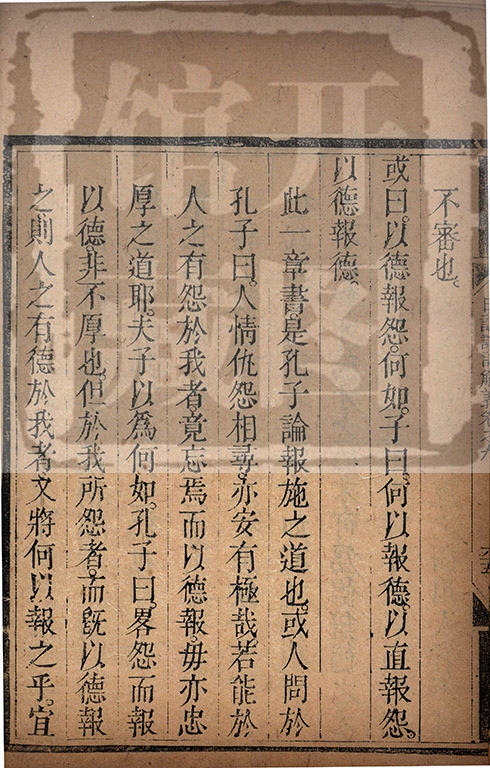 不審也。
或曰。以德報怨。何如。子曰。何以報德。以直報怨。
以德報德。
此一章書。是孔子論報施之道也。或人問於
孔子曰。人情仇怨相尋。亦安有極哉。若能於
人之有怨於我者。竟忘焉而以德報。毋亦忠
厚之道耶。夫子以爲何如。孔子曰。畧怨而報
以德。非不厚也。但於我所怨者。而旣以德報
之。則人之有德於我者。又將何以報之乎。宜